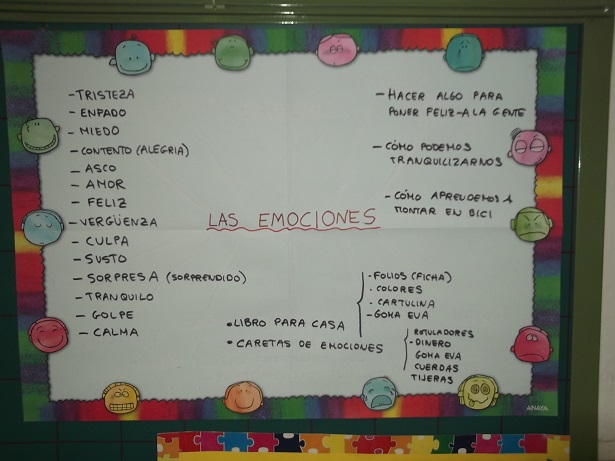 - TRISTEZA
- ENFADO
- MIEDO
- CONTENTO (ALEGRIA)
- ASCO
- AMOR
- FELIZ
- VERGÜENZA
- CULPA
- SUSTO
- SORPRESA (SORPRENDIDO)
- TRANQUILO
- GOLPE
- CALMA
LAS EMOCIONES
- HACER ALGO PARA
PONER FELIZ A LA GENTE
- CÓMO PODEMOS
TRANQUILIZARNOS
- CÓMO APRENDEMOS A
MONTAR EN BICI
• LIBRO PARA CASA
- FOLIOS (FICHA)
- COLORES
- CARTULINA
- GOMA EVA
• CARETAS DE EMOCIONES
ROTULADORES
- DINERO
GOMA EVA
CUERDAS
TIJERAS
ANAYA